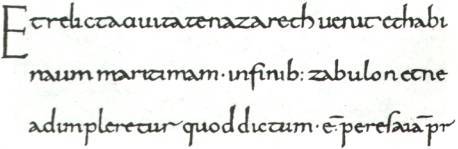 Et relicta ciuitate nazareth uenit et habi
naum maritimam · infinib: zabulon et ne
adimpleretur quod dictum · ē per esaiā pr